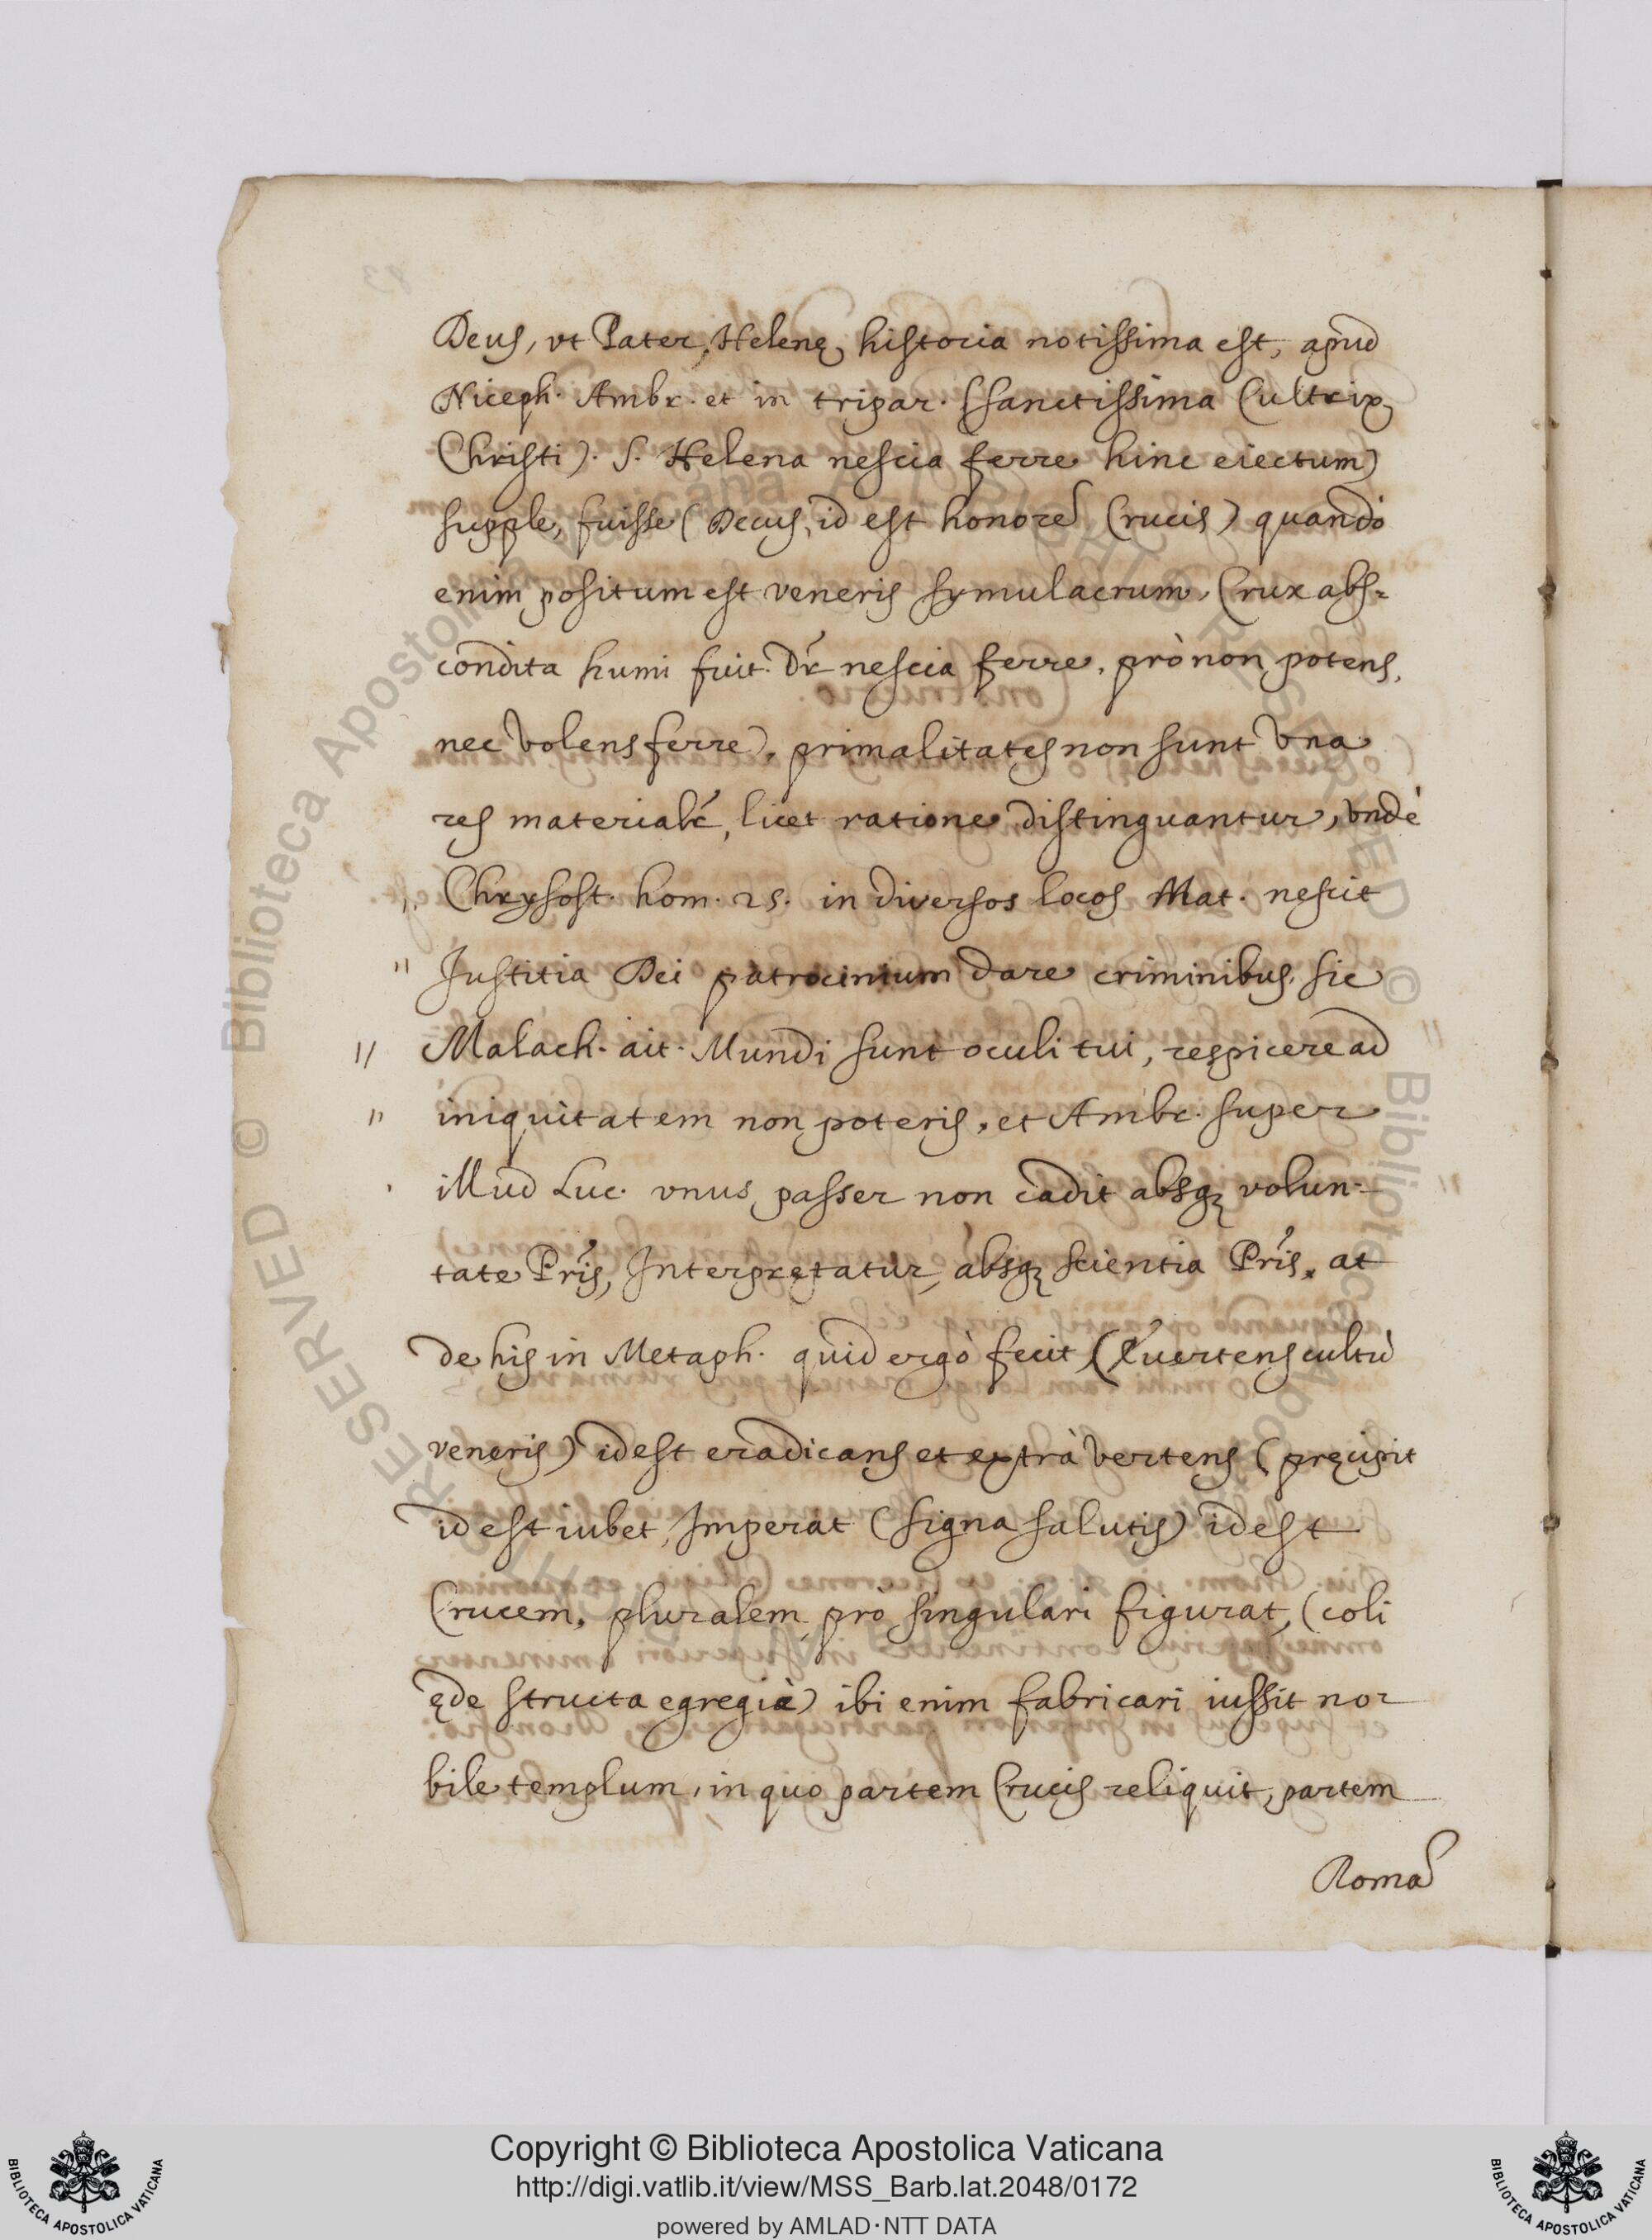 Deus, vt Pater, Helenę historia notissima est, apud
Niceph. Ambr. et in tripar. (sanctissima Cultrix
Christi). S. Helena nescia ferre hinc eiectum)
supple, fuisse (Decus, id est honorẽ Crucis) quando
enim positum est veneris symulacrum, Crux abs-
condita humi fuit. Dr̃ nescia ferre, prò non potens,
nec volens ferre), primalitates non sunt vna
res materialr̃, licet ratione distinguantur, vndè
" Chrysost. hom. 25. in diversos locos Mat. nescit
" Justitia Dei patrocinium dare criminibus, sic
" Malach. ait. Mundi sunt oculi tui, respicere ad
" iniquitatem non poteris, et Ambr. super
illud Luc. vnus passer non cadit absqꝫ volun-
tate Pr̃is, Interpretatur, absqꝫ scientia Pr̃is, at
de his in Metaph. quid ergò fecit (Euertens cultũ
veneris) id est eradicans et extrà vertens (pręcipit
id est iubet, Imperat (signa salutis) id est
Crucem, pluralem prò singulari figurat, (coli
ęde structa egregià) ibi enim fabricari iussit no-
bile templum, in quo partem Crucis reliquit, partem
Romã
Copyright © Biblioteca Apostolica Vaticana
http://digi.vatlib.it/view/MSS_Barb.lat.2048/0172
powered by AMLAD·NTT DATA
BIBLIOTECA APOSTOLICA VATICANA
BIBLIOTECA APOSTOLICA VATICANA